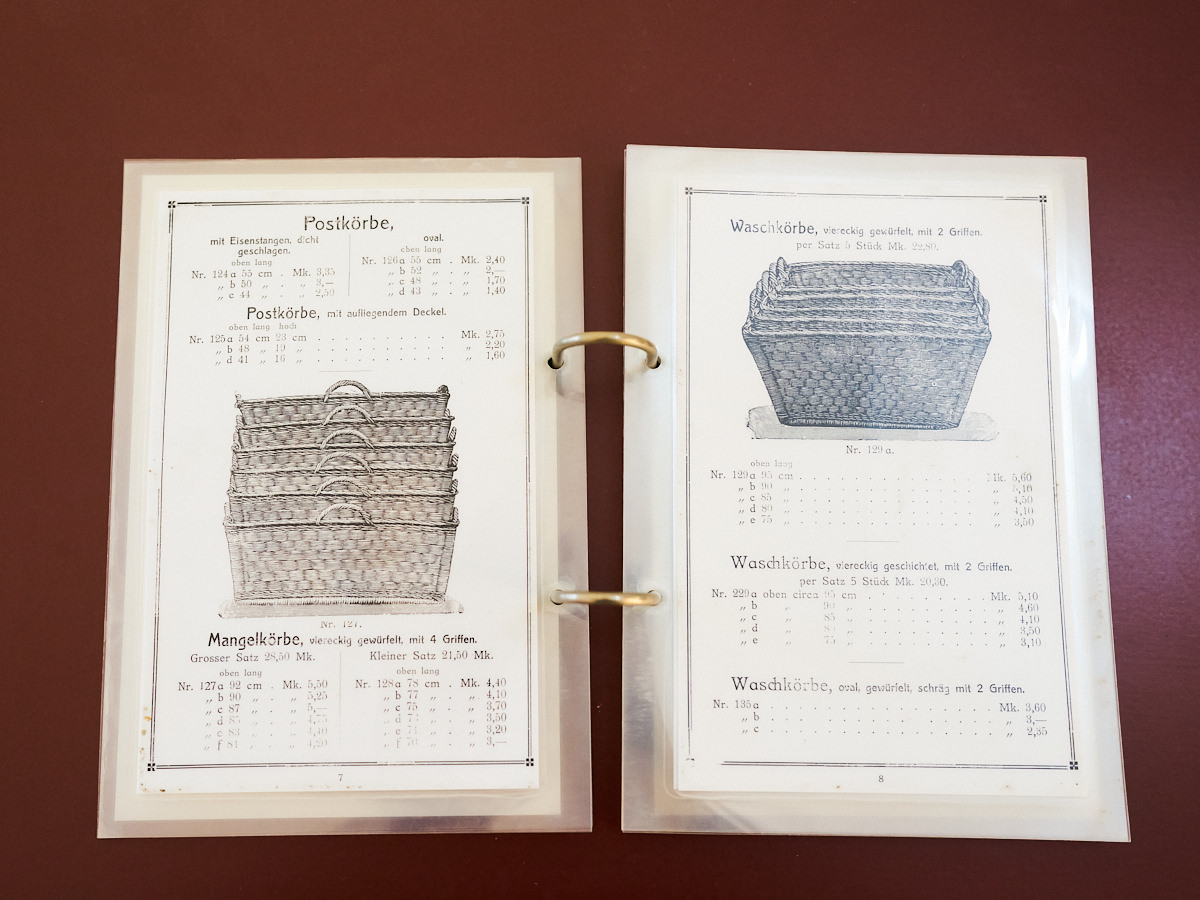 Postkörbe,
mit Eisenstangen, dicht
geschlagen.
oben lang
Nr. 124a 55 cm . Mk. 3,35
„ b 50 „ . „ 3,—
„ c 44 „ . „ 2,50
oval.
oben lang
Nr. 126a 55 cm . Mk. 2,40
„ b 52 „ . „ 2,—
„ c 48 „ . „ 1,70
„ d 43 „ . „ 1,40
Postkörbe, mit aufliegendem Deckel.
oben lang hoch
Nr. 125a 54 cm 23 cm . . . . . . . . . . Mk. 2,75
„ b 48 „ 19 „ . . . . . . . . . . „ 2,20
„ d 41 „ 16 „ . . . . . . . . . . „ 1,60
Nr. 127.
Mangelkörbe, viereckig gewürfelt, mit 4 Griffen.
Grosser Satz 28,50 Mk.
oben lang
Nr. 127a 92 cm . Mk. 5,50
„ b 90 „ . „ 5,25
„ c 87 „ . „ 5,—
„ d 85 „ . „ 4,75
„ e 83 „ . „ 4,40
„ f 81 „ . „ 4,20
Kleiner Satz 21,50 Mk.
oben lang
Nr. 128a 78 cm . Mk. 4,40
„ b 77 „ . „ 4,10
„ c 75 „ . „ 3,70
„ d „ . „ 3,50
„ e „ . „ 3,20
„ f 70 „ . „ 3,—
7
Waschkörbe, viereckig gewürfelt, mit 2 Griffen.
per Satz 5 Stück Mk. 22,80.
Nr. 129a.
oben lang
Nr. 129a 95 cm . . . . . . . . . . Mk. 5,60
„ b 90 „ . . . . . . . . . . „ 5,10
„ c 85 „ . . . . . . . . . . „ 4,50
„ d 80 „ . . . . . . . . . . „ 4,10
„ e 75 „ . . . . . . . . . . „ 3,50
Waschkörbe, viereckig geschichtet, mit 2 Griffen.
per Satz 5 Stück Mk. 20,30.
Nr. 229a oben circa 95 cm . . . . . . . Mk. 5,10
„ b „ 90 „ . . . . . . . „ 4,60
„ c „ 85 „ . . . . . . . „ 4,10
„ d „ „ . . . . . . . „ 3,50
„ e „ 75 „ . . . . . . . „ 3,10
Waschkörbe, oval, gewürfelt, schräg mit 2 Griffen.
Nr. 135a . . . . . . . . . . . . Mk. 3,60
„ b . . . . . . . . . . . . „ 3,—
„ c . . . . . . . . . . . . „ 2,35
8